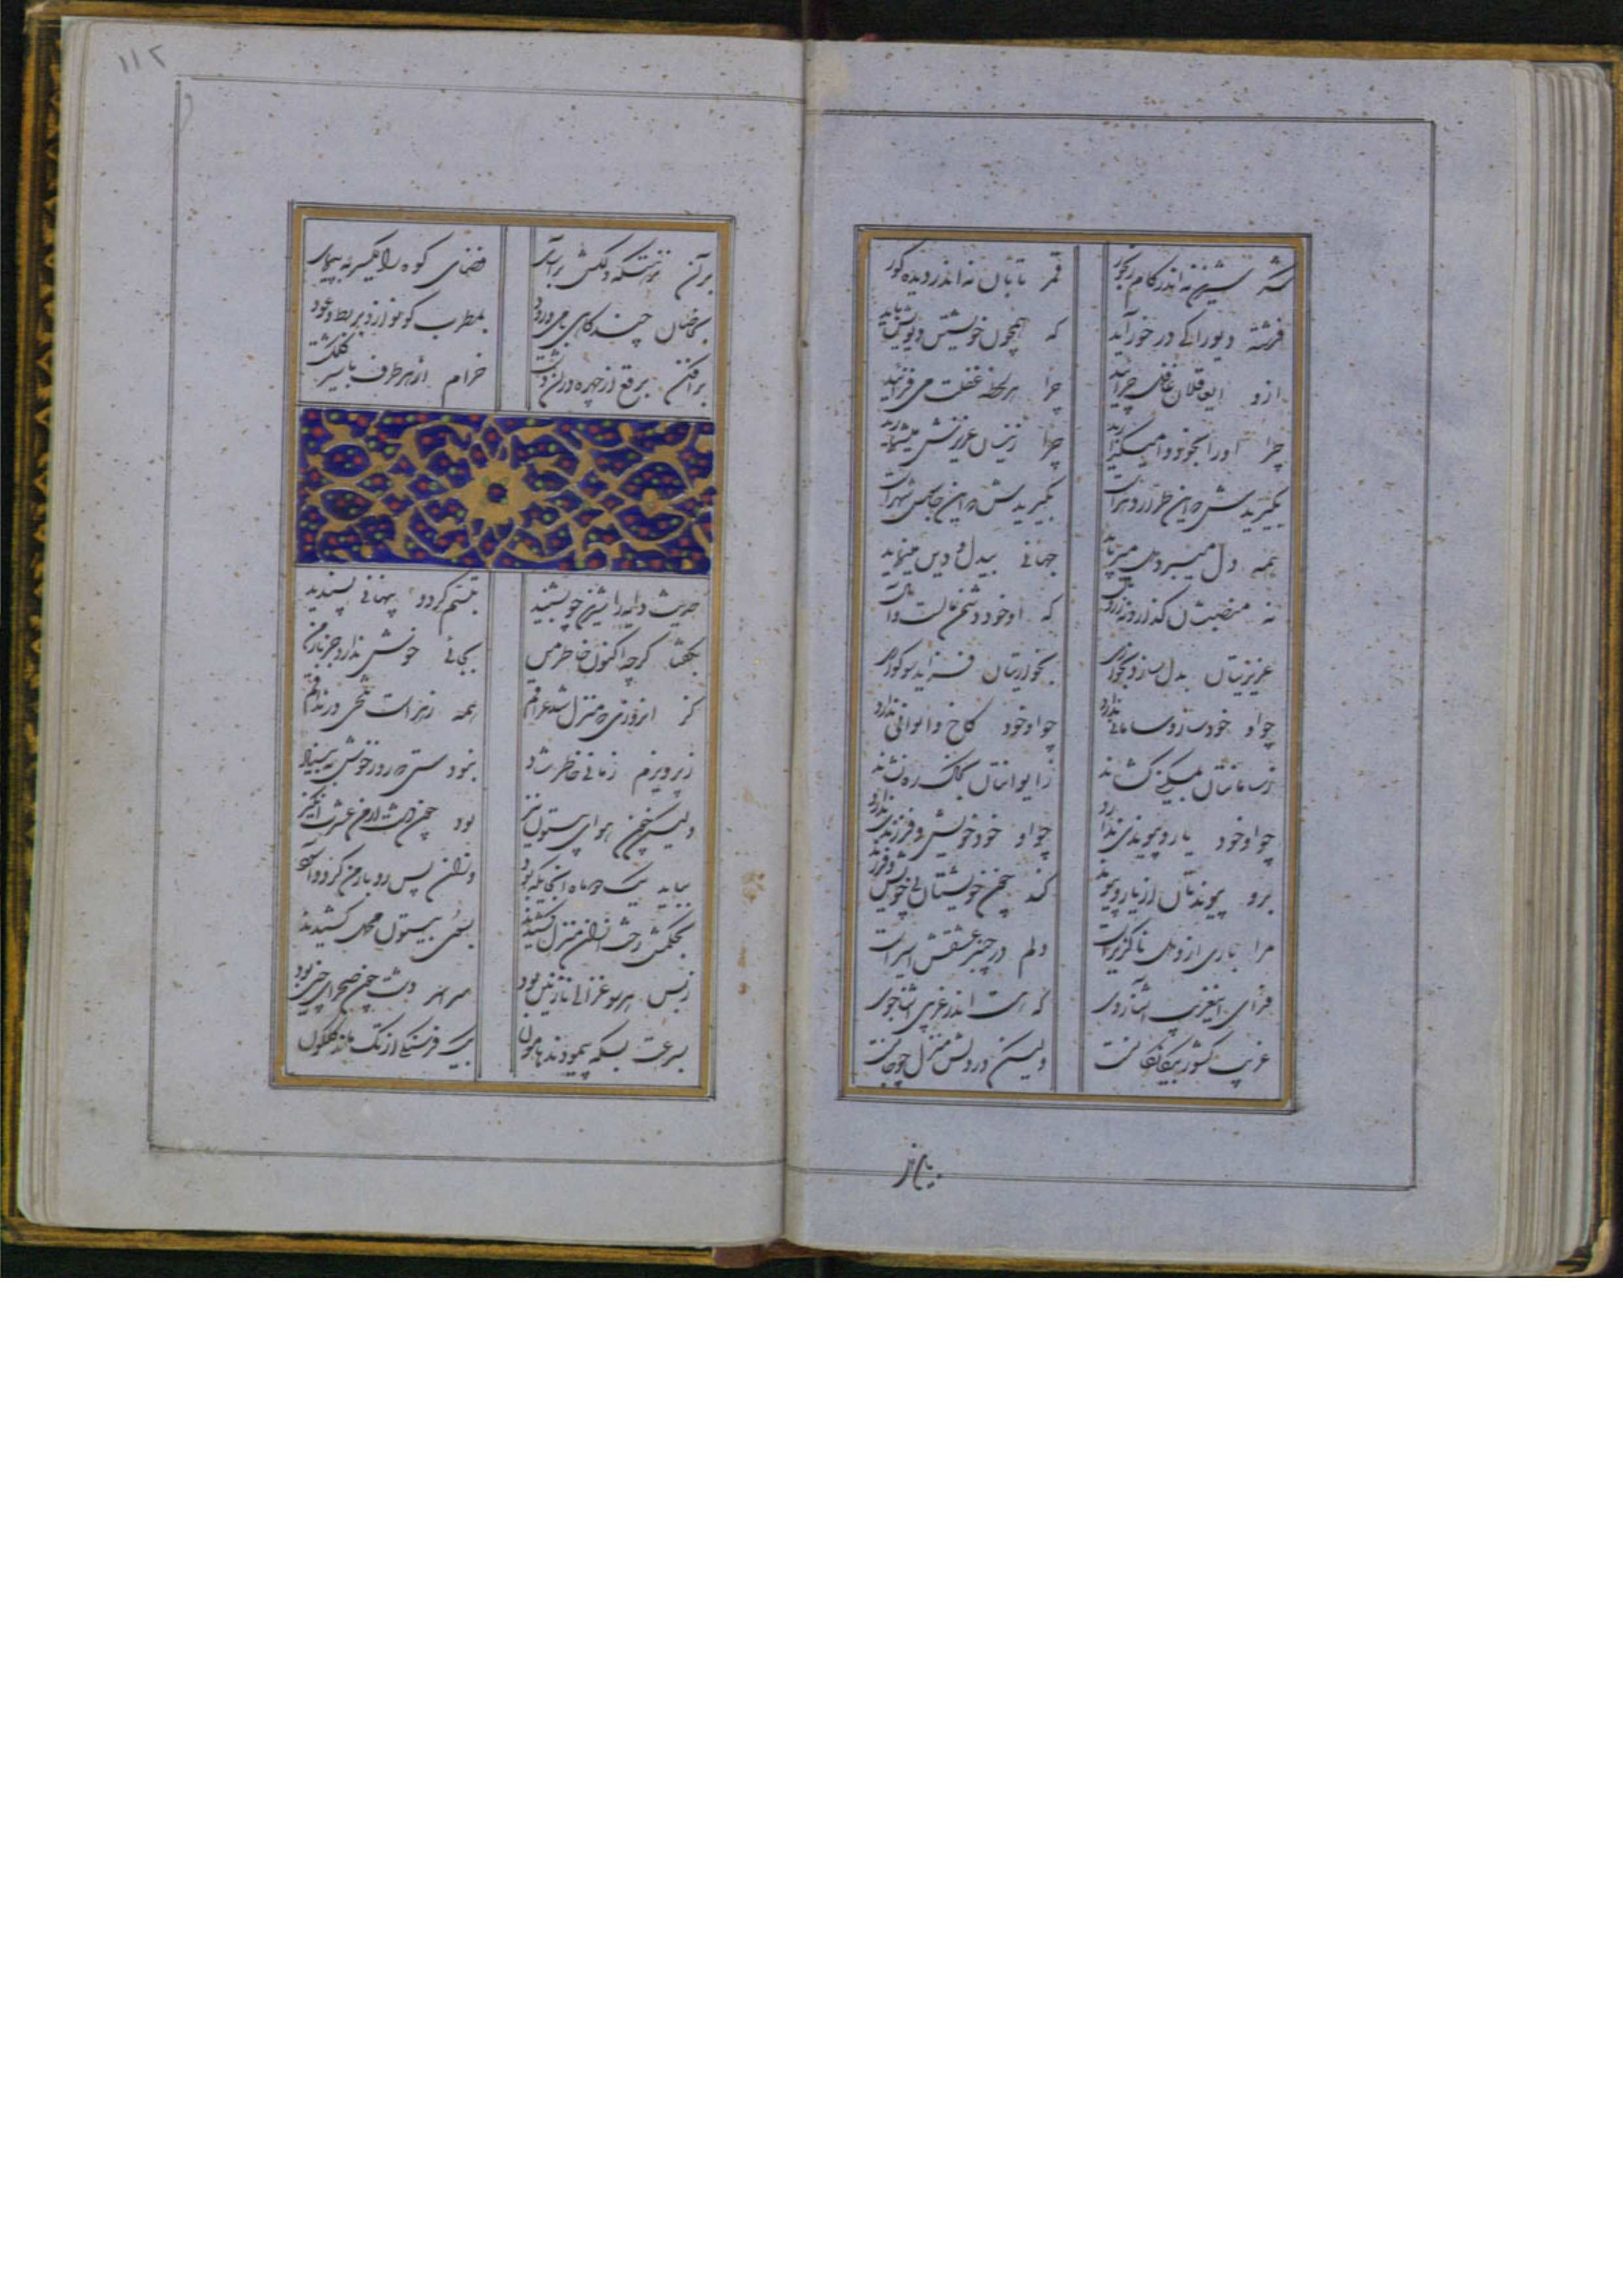 شکر شیرین نه اندر کام رنجور
قمر تابان نه اندر دیده کور
فرشته دیو را کی در خور آید
که همچون خویشتن دیویش باید
ازو ای عاقلان غافل چرائید
چرا هر لحظه غفلت می‌فزائید
چرا او را بخود وا میگذارید
چرا زینسان عزیزش میشمارید
بگیریدش که این طرار
بگیریدش که این شهر
همه دل میبرد
جهانی بیدل و دین مینماید
نه منصبشان گذارد نه
که او خود دشمن مالست و
عزیزیتان بدل سازد بخواری
بخواریتان فزاید سوگواری
چو او خود ساز و سامانی ندارد
چو او خود کاخ و ایوانی ندارد
ز سامانتان به مسکینی کشاند
ز ایوانتان بخاک ره نشاند
چو او خود یار و پیوندی ندارد
چو او خود خویش و فرزندی ندارد
برد پیوندتان از یار و پیوند
کند چون خویشتان بی خویش و فرزند
مرا باری از و دل ناگزیر است
دلم در چنبر عشقش اسیر است
غریب آشنا روی
که هست اندر غریبی آشنا جوی
غریب کشور بیگانگانست
ولیکن در دلش منزل چو جانست
۱۱۲
بر آن نزهتگه دلکش بر آسای
فضای کوه را یکسر بپیمای
چند گاهی با می و رود
بمطرب گو نوازد بربط و عود
برافکن برقع از چهره در آن دشت
خرام از هر طرف با سیر گلگشت
حدیث دایه را شیرین چو بشنید
تبسم کرد و پنهانی پسندید
بگفتا گرچه اکنون خاطر من
بجائی خوش ندارد جز بارمن
کز آنروزی که منزل شد عراقم
همه زهر است تلخی در مذاقم
ز پرویزم زمانی خاطر شاد
نبودستی که روز خوش نبیناد
ولیکن چون هوای بیستون نیز
بود چون دشت ارمن عشرت انگیز
بباید یک دو ماه آنجایگه بود
وزان پس رو به ارمن کرد و آسود
بحکمش رخت از آن منزل کشیدند
بسوی بیستون محمل کشیدند
ز بس هر سو غزالی نازنین بود
سراسر دشت چون صحرای چین بود
بسرعت بسکه پیمودند هامون
بیک فرسنگی از تک ماند گلگون